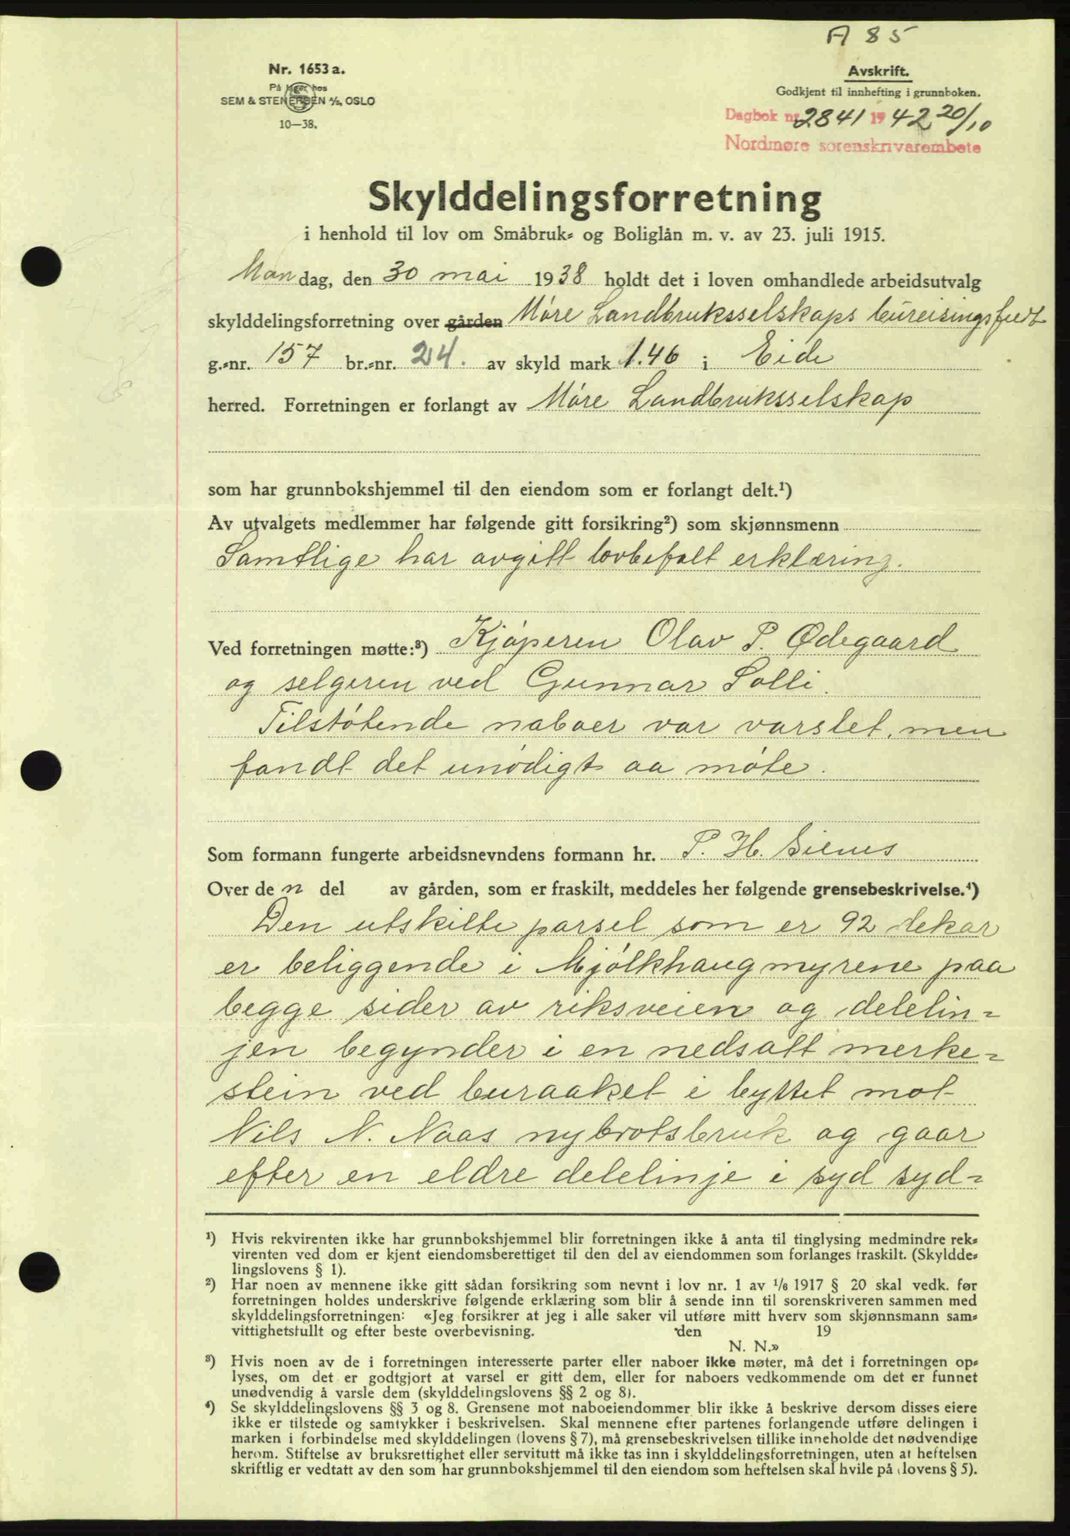 A 85
Nr. 1653 a.
På lager hos
SEM & STENERSEN A/S, OSLO
10—38.
Avskrift.
Godkjent til innhefting i grunnboken.
Dagbok nr. 2841 1942 20/10
Nordmøre sorenskrivarembete
Skylddelingsforretning
i henhold til lov om Småbruk- og Boliglån m. v. av 23. juli 1915.
Mandag, den 30 mai 1938 holdt det i loven omhandlede arbeidsutvalg
skylddelingsforretning over gården Møre Landbruksselskaps bureisingsfelt
g.-nr. 157 br.-nr. 24. av skyld mark 1.46 i Eide
herred. Forretningen er forlangt av Møre Landbruksselskap
som har grunnbokshjemmel til den eiendom som er forlangt delt.¹)
Av utvalgets medlemmer har følgende gitt forsikring²) som skjønnsmenn
Samtlige har avgitt lovbefalt erklæring.
Ved forretningen møtte:³) Kjøperen Olav P. Ødegaard
og selgeren ved Gunnar Solli.
Tilstøtende naboer var varslet, men
fandt det unødigt aa møte.
Som formann fungerte arbeidsnevndens formann hr. P. H.
Over de n del av gården, som er fraskilt, meddeles her følgende grensebeskrivelse.⁴)
Den utskilte parsel som er 92 dekar
er beliggende i Mjølkhaugmyrene paa
begge sider av riksveien og delelin-
jen begynder i en nedsatt merke-
stein ved buraaket i byttet mot
Nils N. Naas nybrotsbruk og gaar
efter en eldre delelinje i syd syd-
¹) Hvis rekvirenten ikke har grunnbokshjemmel blir forretningen ikke å anta til tinglysing medmindre rek-
virenten ved dom er kjent eiendomsberettiget til den del av eiendommen som forlanges fraskilt. (Skyldde-
lingslovens § 1).
²) Har noen av mennene ikke gitt sådan forsikring som nevnt i lov nr. 1 av 1/6 1917 § 20 skal vedk. før
forretningen holdes underskrive følgende erklæring som blir å sende inn til sorenskriveren sammen med
skylddelingsforretningen: «Jeg forsikrer at jeg i alle saker vil utføre mitt hverv som skjønnsmann sam-
vittighetsfullt og efter beste overbevisning. den 19
N. N.»
³) Hvis noen av de i forretningen interesserte parter eller naboer ikke møter, må det i forretningen op-
lyses, om det er godtgjort at varsel er gitt dem, eller for naboers vedkommende om det er funnet
unødvendig å varsle dem (skylddelingslovens §§ 2 og 8).
⁴) Se skylddelingslovens §§ 3 og 8. Grensene mot naboeiendommer blir ikke å beskrive dersom disses eiere
ikke er tilstede og samtykker i beskrivelsen. Skal mennene efter partenes forlangende utføre delingen i
marken i forbindelse med skylddelingen (lovens § 7), må grensebeskrivelsen tillike inneholde det nødvendige
herom. Stiftelse av bruksrettighet eller servitutt må ikke tas inn i skylddelingsforretningen, uten at heftelsen
skriftlig er vedtatt av den som har grunnbokshjemmel til den eiendom som heftelsen skal hvile på (lovens § 5).